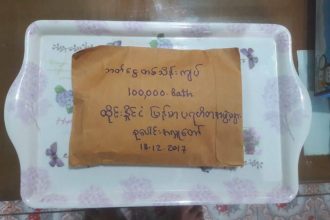 ဘတ်ငွေ တစ်သိန်းကျပ်
100,000. Bath
ထိုင်းနိုင်ငံ မြန်မာ ပရဟိတအဖွဲ့များ
စုပေါင်းအလှူတော်
18-12-2017